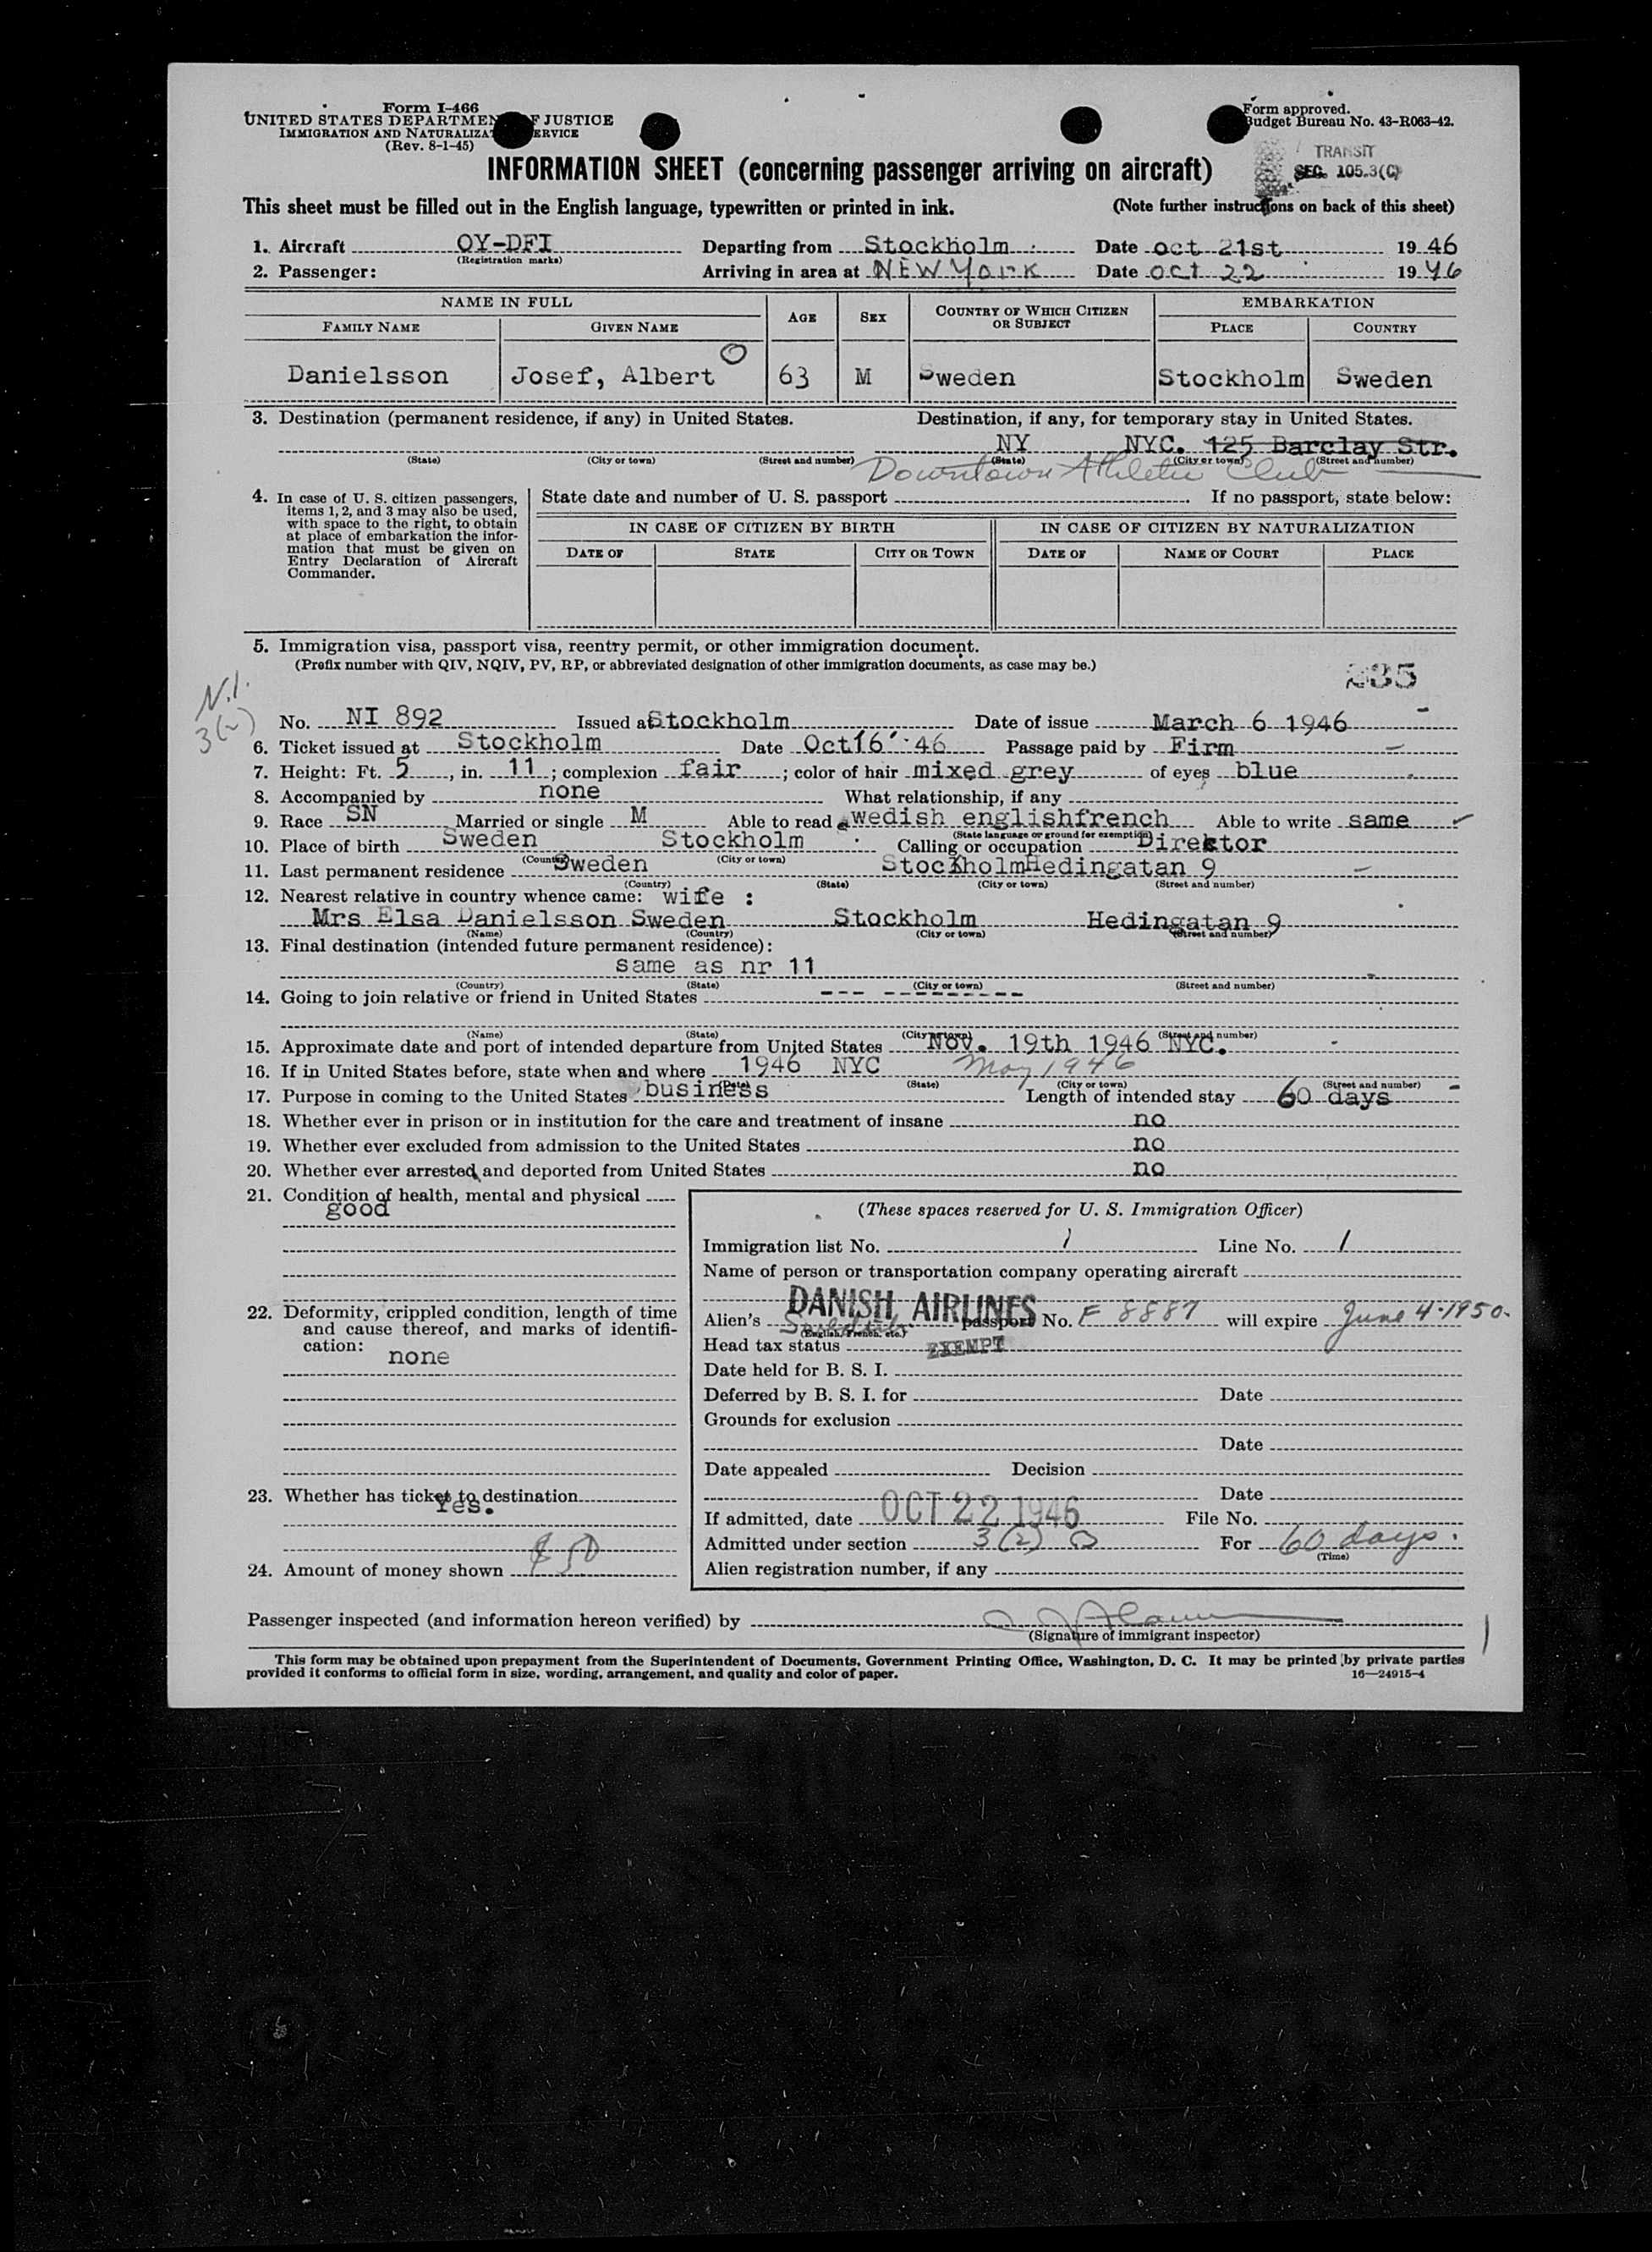 Form I-466
UNITED STATES DEPARTMEN F JUSTICE
IMMIGRATION AND NATURALIZAT ERVICE
(Rev. 8-1-45)
Form approved.
Budget Bureau No. 43-R063-42.
TRANSIT
SEC. 105.3(C)
INFORMATION SHEET (concerning passenger arriving on aircraft)
This sheet must be filled out in the English language, typewritten or printed in ink. (Note further instructions on back of this sheet)
1. Aircraft OY-DFI Departing from Stockholm Date oct 21st 1946
(Registration marks)
2. Passenger: Arriving in area at NEW YORK Date oct 22 1946
NAME IN FULL AGE SEX COUNTRY OF WHICH CITIZEN OR SUBJECT EMBARKATION
FAMILY NAME GIVEN NAME PLACE COUNTRY
Danielsson Josef, Albert 63 M Sweden Stockholm Sweden
3. Destination (permanent residence, if any) in United States. Destination, if any, for temporary stay in United States.
NY NYC. 125 Barclay Str.
(State) (City or town) (Street and number) (State) (City or town) (Street and number)
Downtown Athletic Club
4. In case of U. S. citizen passengers, items 1, 2, and 3 may also be used, with space to the right, to obtain at place of embarkation the information that must be given on Entry Declaration of Aircraft Commander.
State date and number of U. S. passport If no passport, state below:
IN CASE OF CITIZEN BY BIRTH IN CASE OF CITIZEN BY NATURALIZATION
DATE OF STATE CITY OR TOWN DATE OF NAME OF COURT PLACE
5. Immigration visa, passport visa, reentry permit, or other immigration document.
(Prefix number with QIV, NQIV, PV, RP, or abbreviated designation of other immigration documents, as case may be.)
235
N.I.
3(2)
No. NI 892 Issued at Stockholm Date of issue March 6 1946
6. Ticket issued at Stockholm Date Oct 16 46 Passage paid by Firm
7. Height: Ft. 5, in. 11; complexion fair; color of hair mixed grey of eyes blue
8. Accompanied by none What relationship, if any
9. Race SN Married or single M Able to read swedish englishfrench Able to write same
(State language or ground for exemption)
10. Place of birth Sweden Stockholm Calling or occupation Direktor
(Country) (City or town)
11. Last permanent residence Sweden Stockholm Hedingatan 9
(Country) (State) (City or town) (Street and number)
12. Nearest relative in country whence came: wife :
Mrs Elsa Danielsson Sweden Stockholm Hedingatan 9
(Name) (Country) (City or town) (Street and number)
13. Final destination (intended future permanent residence):
same as nr 11
(Country) (State) (City or town) (Street and number)
14. Going to join relative or friend in United States --- ---------
(Name) (State) (City or town) (Street and number)
15. Approximate date and port of intended departure from United States Nov. 19th 1946 NYC.
16. If in United States before, state when and where 1946 NYC May 1946
(Date) (State) (City or town) (Street and number)
17. Purpose in coming to the United States business Length of intended stay 60 days
18. Whether ever in prison or in institution for the care and treatment of insane no
19. Whether ever excluded from admission to the United States no
20. Whether ever arrested and deported from United States no
21. Condition of health, mental and physical
good
22. Deformity, crippled condition, length of time and cause thereof, and marks of identification:
none
23. Whether has ticket to destination
Yes.
24. Amount of money shown $50
(These spaces reserved for U. S. Immigration Officer)
Immigration list No. 1 Line No. 1
Name of person or transportation company operating aircraft
DANISH AIRLINES
Alien's Swedish passport No. F 8887 will expire June 4-1950.
(English, French, etc.)
Head tax status EXEMPT
Date held for B. S. I.
Deferred by B. S. I. for Date
Grounds for exclusion
Date
Date appealed Decision
Date
If admitted, date OCT 22 1946 File No.
Admitted under section 3(2) For 60 days.
(Time)
Alien registration number, if any
Passenger inspected (and information hereon verified) by
(Signature of immigrant inspector)
This form may be obtained upon prepayment from the Superintendent of Documents, Government Printing Office, Washington, D. C. It may be printed by private parties
provided it conforms to official form in size, wording, arrangement, and quality and color of paper. 16—24915-4